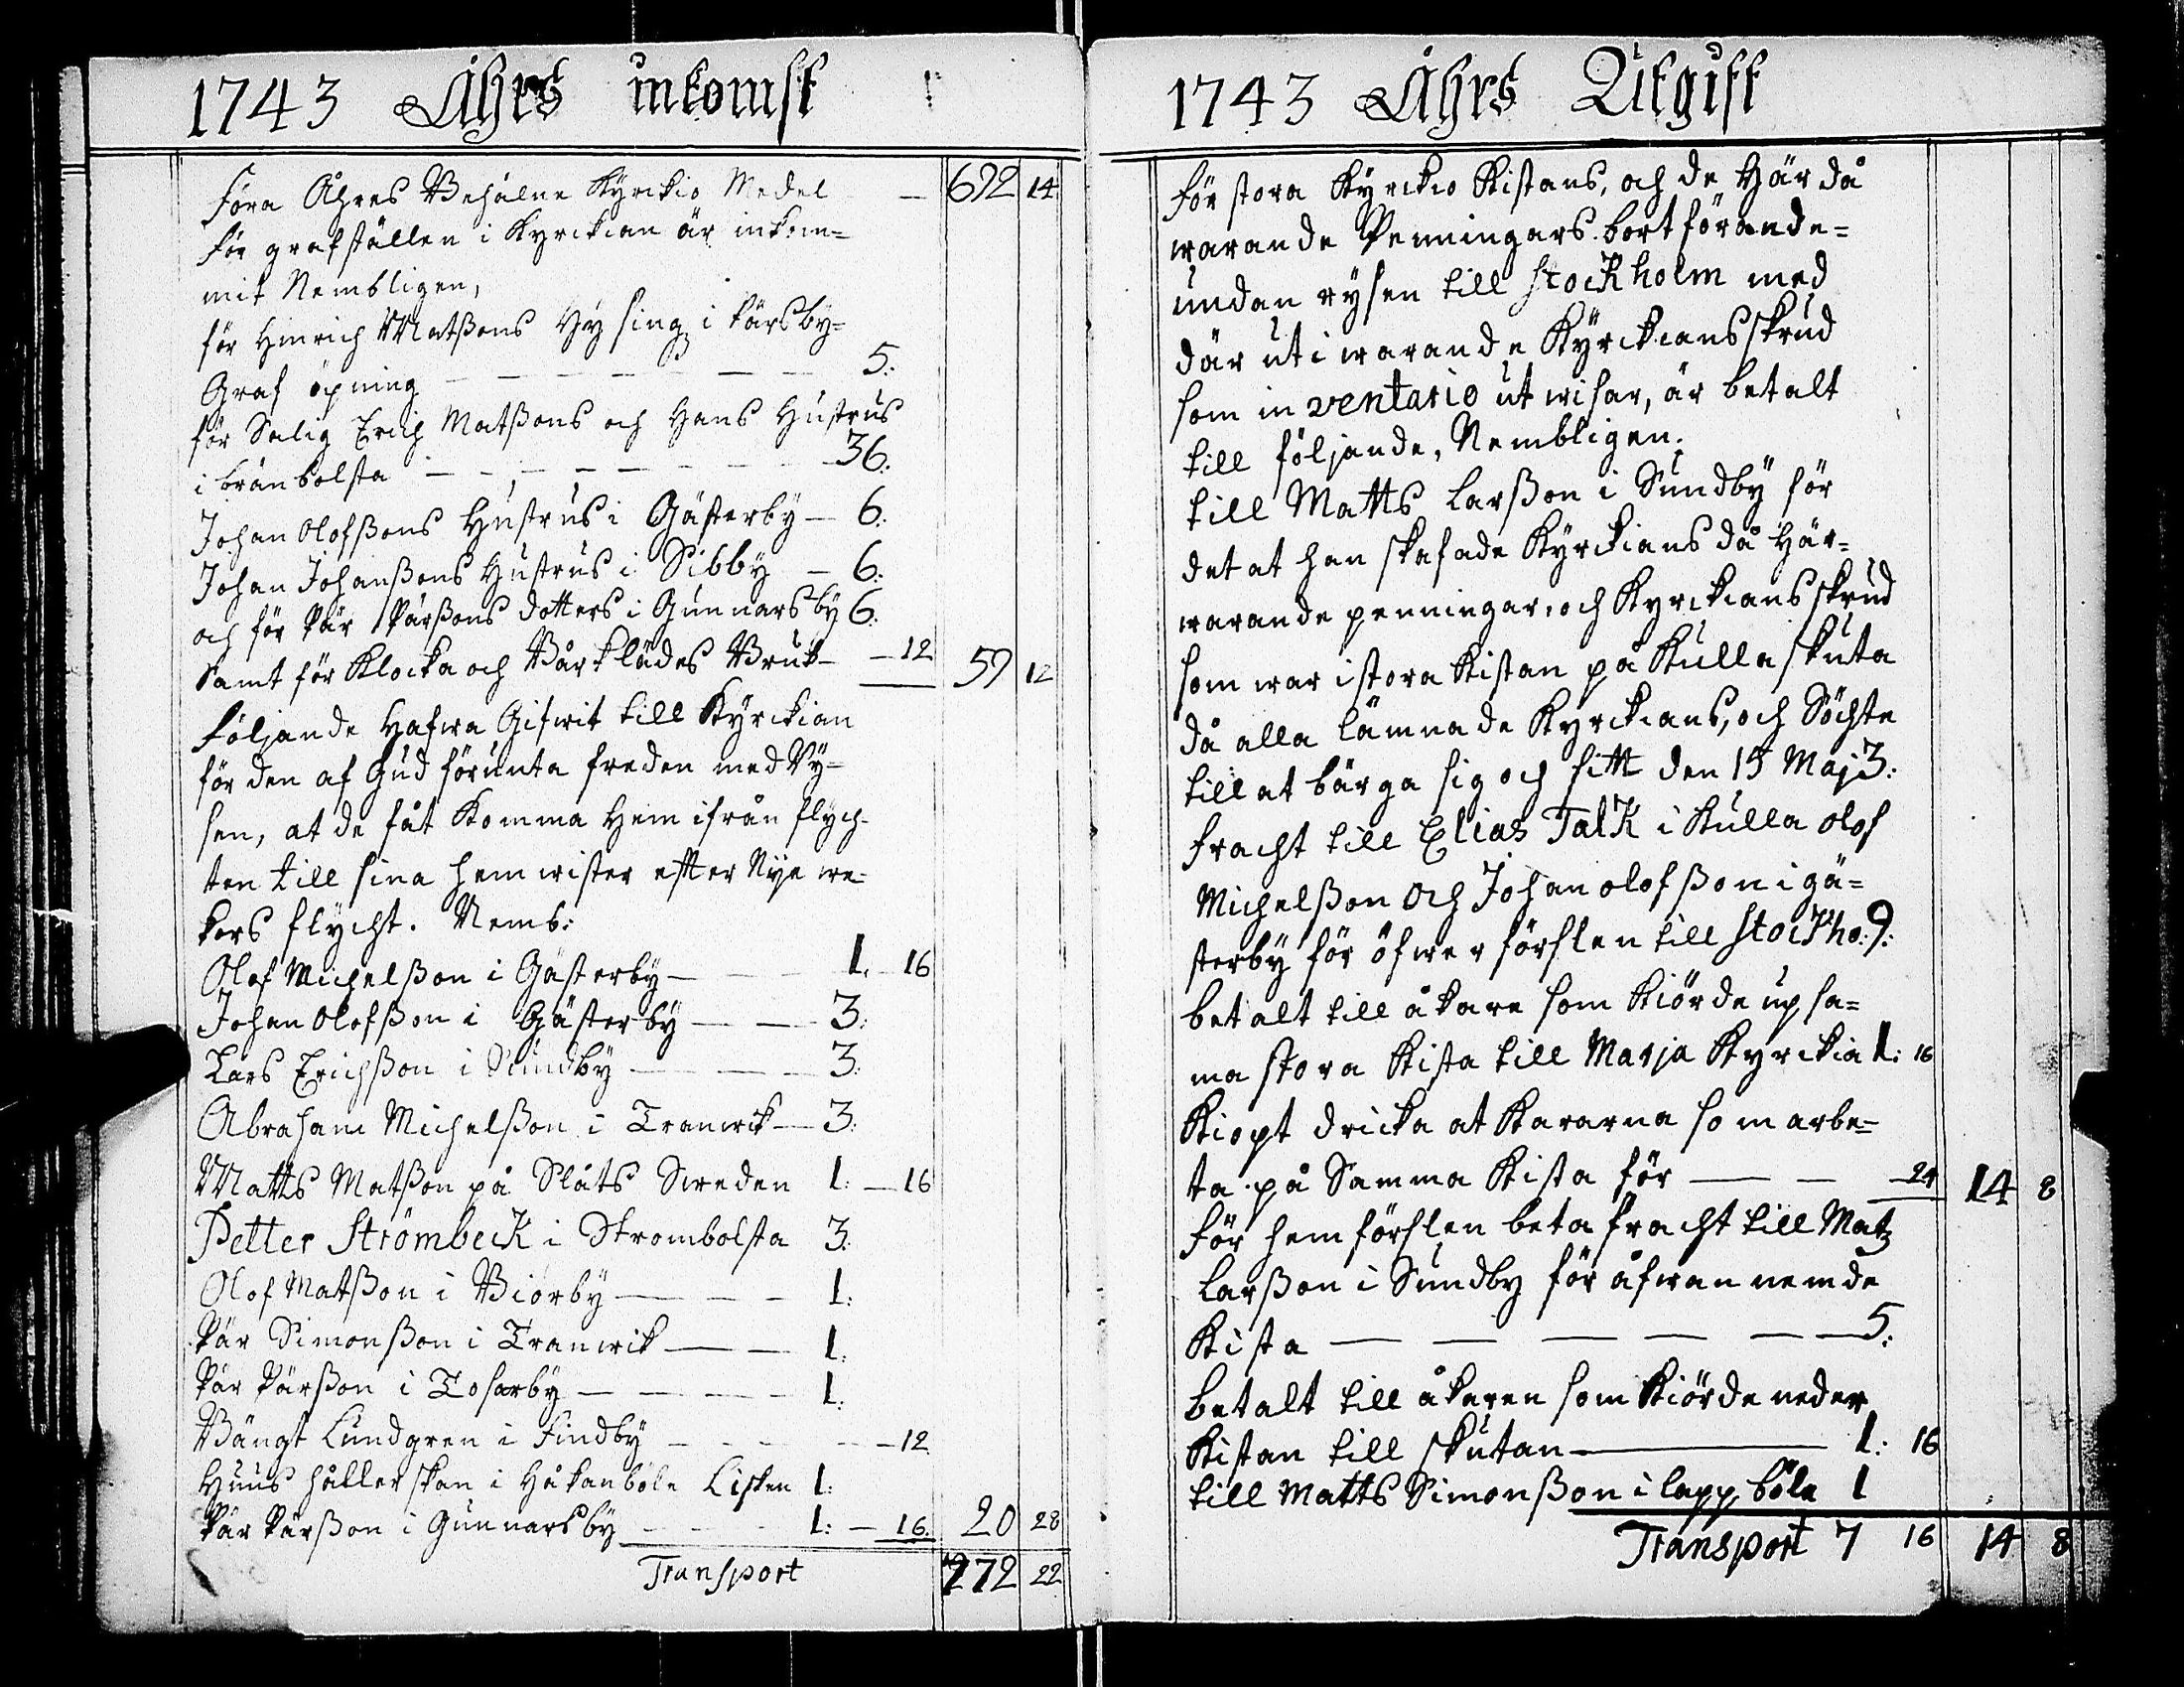 1743 Åhrs inkomst
Föra Åhres Behålne Kyrckio Medel — 692 14
för grafställen i Kyrckian är inkom=
mit Nembligen,
för Hinrich Matßons Hysing i Kårsby=
Graf öpning — — — — — — 5:
för Salig Erich Matßons och Hans Hustrus
i bränbolsta — — — — — — 36:
Johan Olofßons Hustrus i Gästerby — 6:
Johan Johanßons Hustrus i Sibby — 6:
och för Pär Pärßons dotters i Gunnarsby 6:
Samt för Klocka och Bårklädes Bruk — — 12 59 12
Följande Hafwa Gifwit till Kyrckian
för den af Gud förunta freden med Ry=
sen, at de fåt Komma Hem ifrån flych-
ten till sina hemwister efter Nije we-
kors flycht. Nemb:
Olof Michelßon i Gästerby — — 1. 16
Johan Olofßon i Gästerby — — 3:
Lars Erichßon i Sundby — — — 3:
Abraham Michelßon i Tranwik — 3:
Matts Matßon på Slåts Sweden 1: — 16
Petter Strömbeck i Strombolsta 3:
Olof Matßon i Biörby — — — 1:
Pär Simonßon i Tranwik — — 1:
Pär Pärßon i Tosarby — — — — 1:
Bängt Lundgren i Findby — — — — 12
Huus hållerskan i Håkanböle Lisken 1:
Pär Pärßon i Gunnarsby — — — 1: — 16. 20 28
Transport 772 22
1743 Åhrs Utgift
För stora Kyrckio Kistans, och de Här då
warande Penningars bortförande=
undan rysen till Stockholm med
där uti warande Kyrckians skrud
som inventario utwisar, är betalt
till följande, Nembligen.
till Matts Larßon i Sundby för
det at han skafade Kyrckians då Här=
warande penningar, och Kyrckians skrud
som war i stora Kistan på Kulla skuta
då alla lämnade Kyrckians, och Söchte
till at bärga sig och sitt den 15 Maj 3:
fracht till Elias Talk i Kulla olof
Michelßon Och Johan olofßon i gä=
sterby för öfwer förslen till Stockho: 9:
betalt till åkare som Kiörde up sa=
ma stora Kista till Marja Kyrckia 1: 16
Kiöpt dricka at Kararna som arbe=
ta på Samma Kista för — — 24 14 8
För hemförslen beta fracht till Matz
Larßon i Sundby för åfwan nemde
Kista — — — — — — 5:
betalt till åkaren som Kiörde neder
Kistan till skutan — 1: 16
till Matts Simonßon i lappböle 1
Transport 7 16 14 8